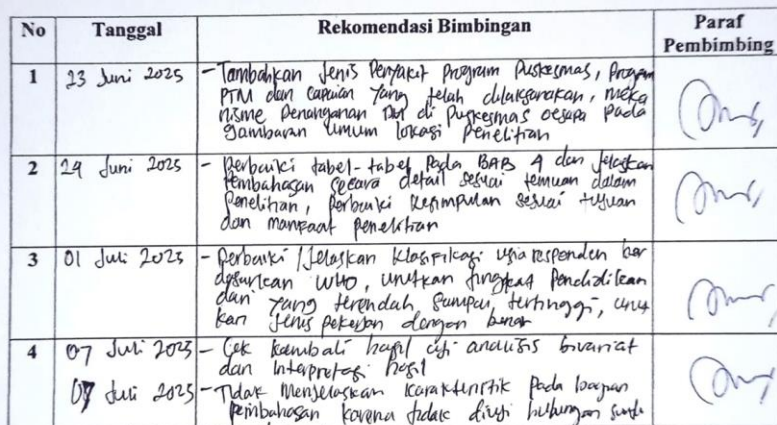 No Tanggal Rekomendasi Bimbingan Paraf Pembimbing
1 23 Juni 2025 - Tambahkan Jenis Penyakit program Puskesmas, Program
PTM dan capaian yang telah dilaksanakan, meka
nisme penanganan di Puskesmas oesapa pada
gambaran umum lokasi penelitian
2 29 Juni 2025 - Perbaiki tabel-tabel pada BAB 4 dan jelaskan
pembahasan secara detail sesuai temuan dalam
penelitian, perbaiki kesimpulan sesuai tujuan
dan manfaat penelitian
3 01 Juli 2025 - Perbaiki / jelaskan klasifikasi usia responden ber
dasarkan WHO, urutkan tingkat pendidikan
dari yang terendah sampai tertinggi, urut
kan jenis pekerjaan dengan benar
4 07 Juli 2025 - Cek kembali hasil uji analisis bivariat
dan interpretasi hasil
07 Juli 2025 - Tidak menjelaskan karakteristik pada bagian
pembahasan karena tidak diuji hubungan